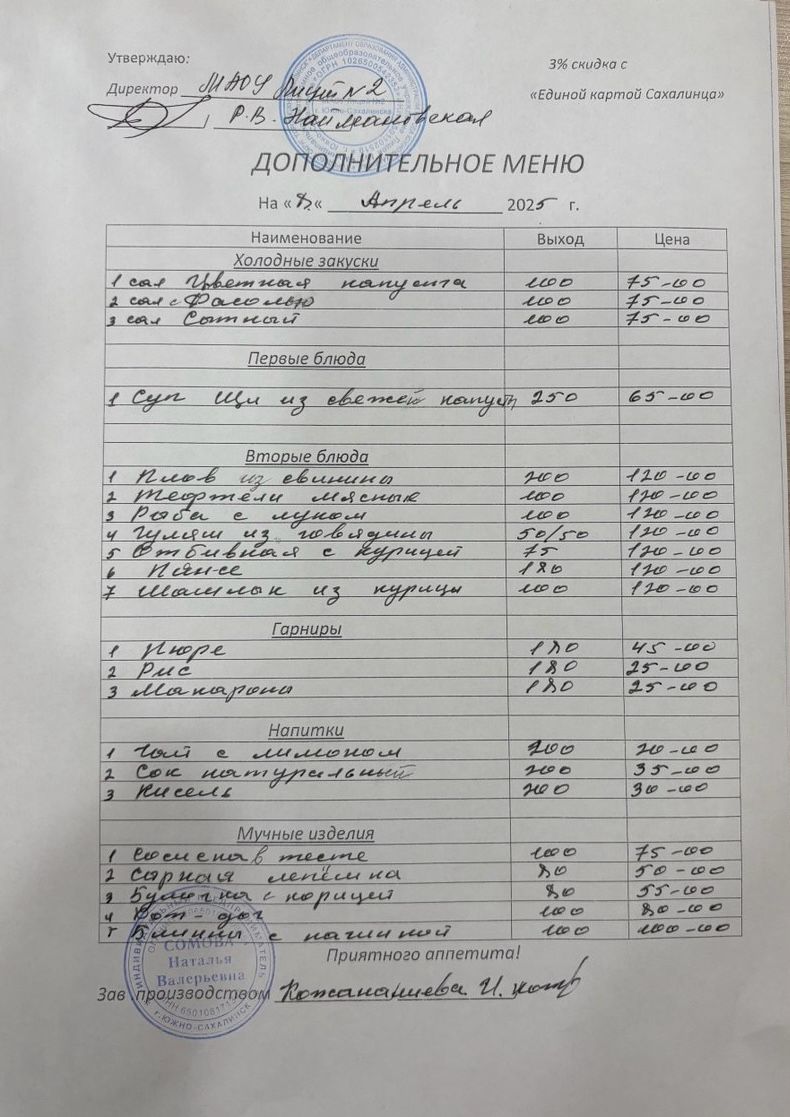 Утверждаю:
3% скидка с
Директор МАОУ Лицей №2
«Единой картой Сахалинца»
/ Р.В. Наймановская
ДОПОЛНИТЕЛЬНОЕ МЕНЮ
На « « Апрель 2025 г.
Наименование Выход Цена
Холодные закуски
1 сал Цветная капуста 100 75-00
2 сал с Фасолью 100 75-00
3 сал Сытный 100 75-00
Первые блюда
1 Суп Щи из свежей капусты 250 65-00
Вторые блюда
1 Плов из свинины 200 120-00
2 Тефтели мясные 100 120-00
3 Рыба с луком 100 120-00
4 Гуляш из говядины 50/50 120-00
5 Отбивная с курицей 75 120-00
6 Пян-се 180 120-00
7 Шашлык из курицы 100 120-00
Гарниры
1 Пюре 180 45-00
2 Рис 180 25-00
3 Макароны 180 25-00
Напитки
1 Чай с лимоном 200 20-00
2 Сок натуральный 200 35-00
3 Кисель 200 30-00
Мучные изделия
1 Сосиска в тесте 100 75-00
2 Сырная лепёшка 80 50-00
3 Булочка с корицей 80 55-00
4 Хот-дог 100 80-00
5 Блины с начинкой 100 100-00
Приятного аппетита!
СОМОВА
Наталья
Валерьевна
г.ЮЖНО-САХАЛИНСК
Зав производством